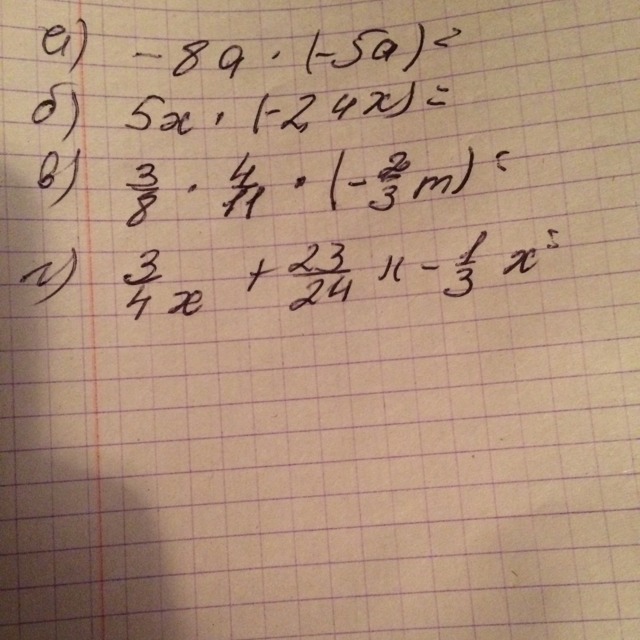 а) - 8a · (-5a) =
б) 5x · (-2,4x) =
в) 3/8 · 4/11 · (-2/3 m) =
г) 3/4 x + 23/24 x - 1/3 x =